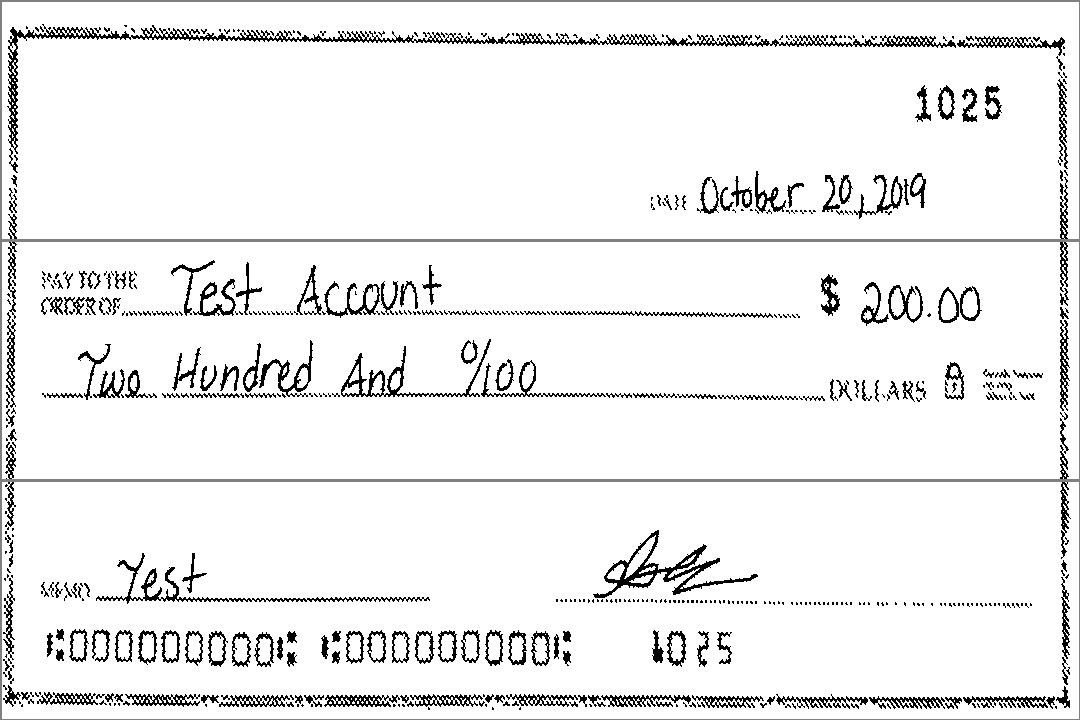 1025
DATE October 20, 2019
PAY TO THE
ORDER OF Test Account $ 200.00
Two Hundred And 0/100 DOLLARS
MEMO Test
⑆000000000⑆ ⑆000000000⑆ 1025